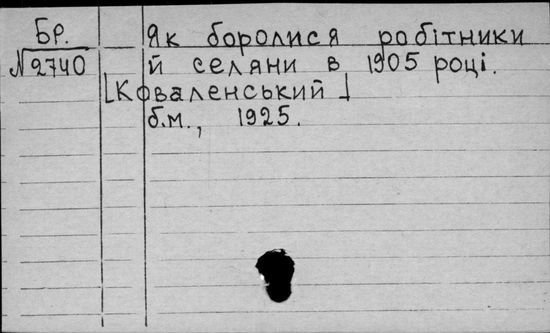 Бр.
№2740
Як боролися робітники
й селяни в 1905 році.
[Коваленський]
б.м., 1925.